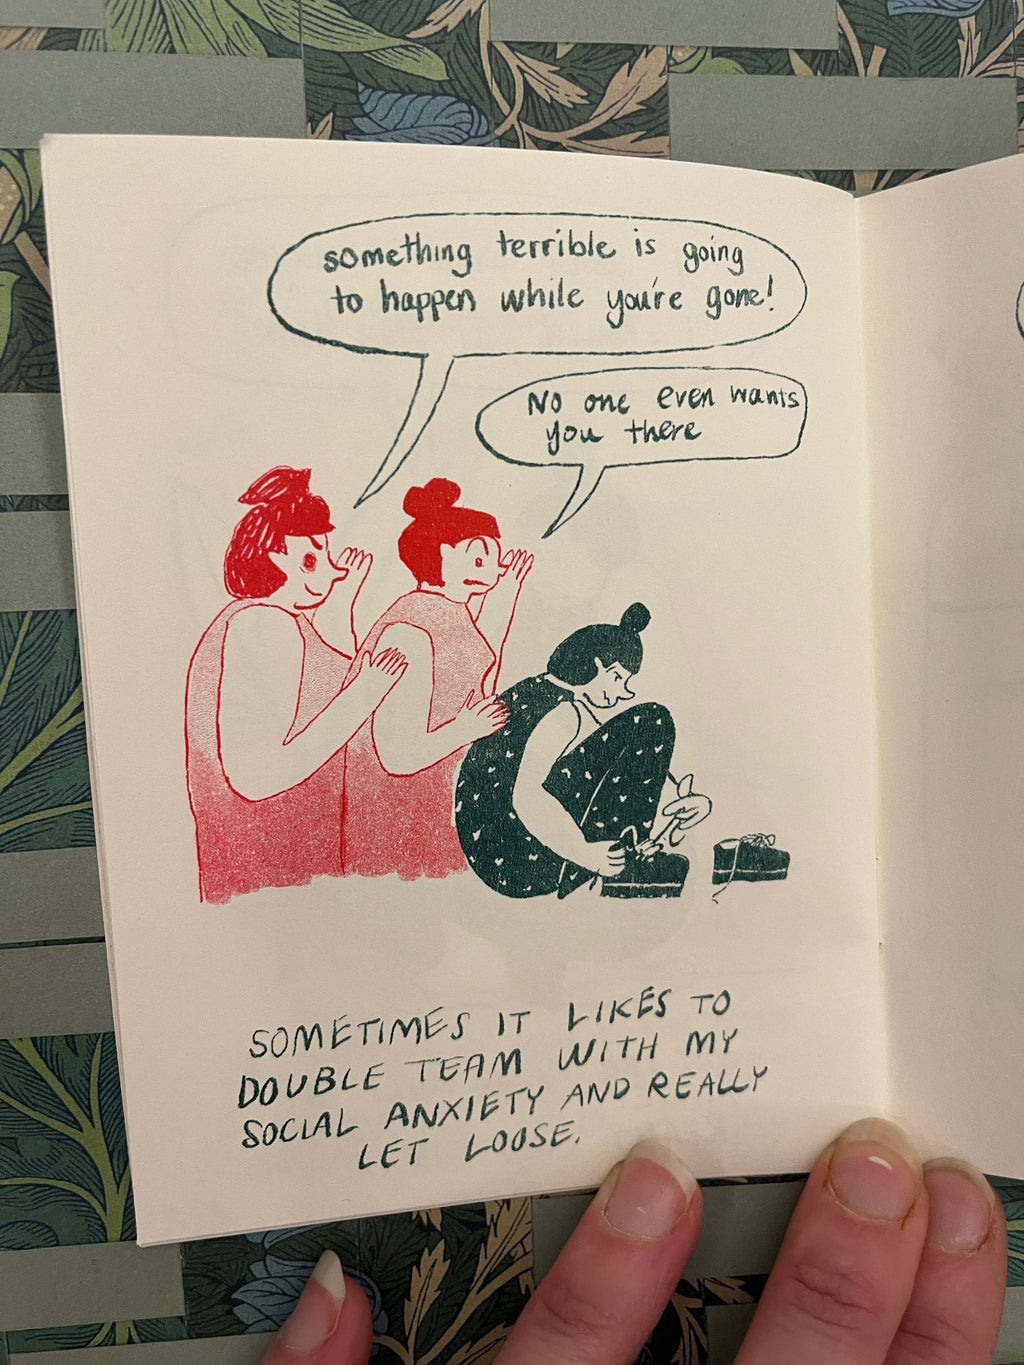 something terrible is going
to happen while you're gone!
No one even wants
you there
SOMETIMES IT LIKES TO
DOUBLE TEAM WITH MY
SOCIAL ANXIETY AND REALLY
LET LOOSE.